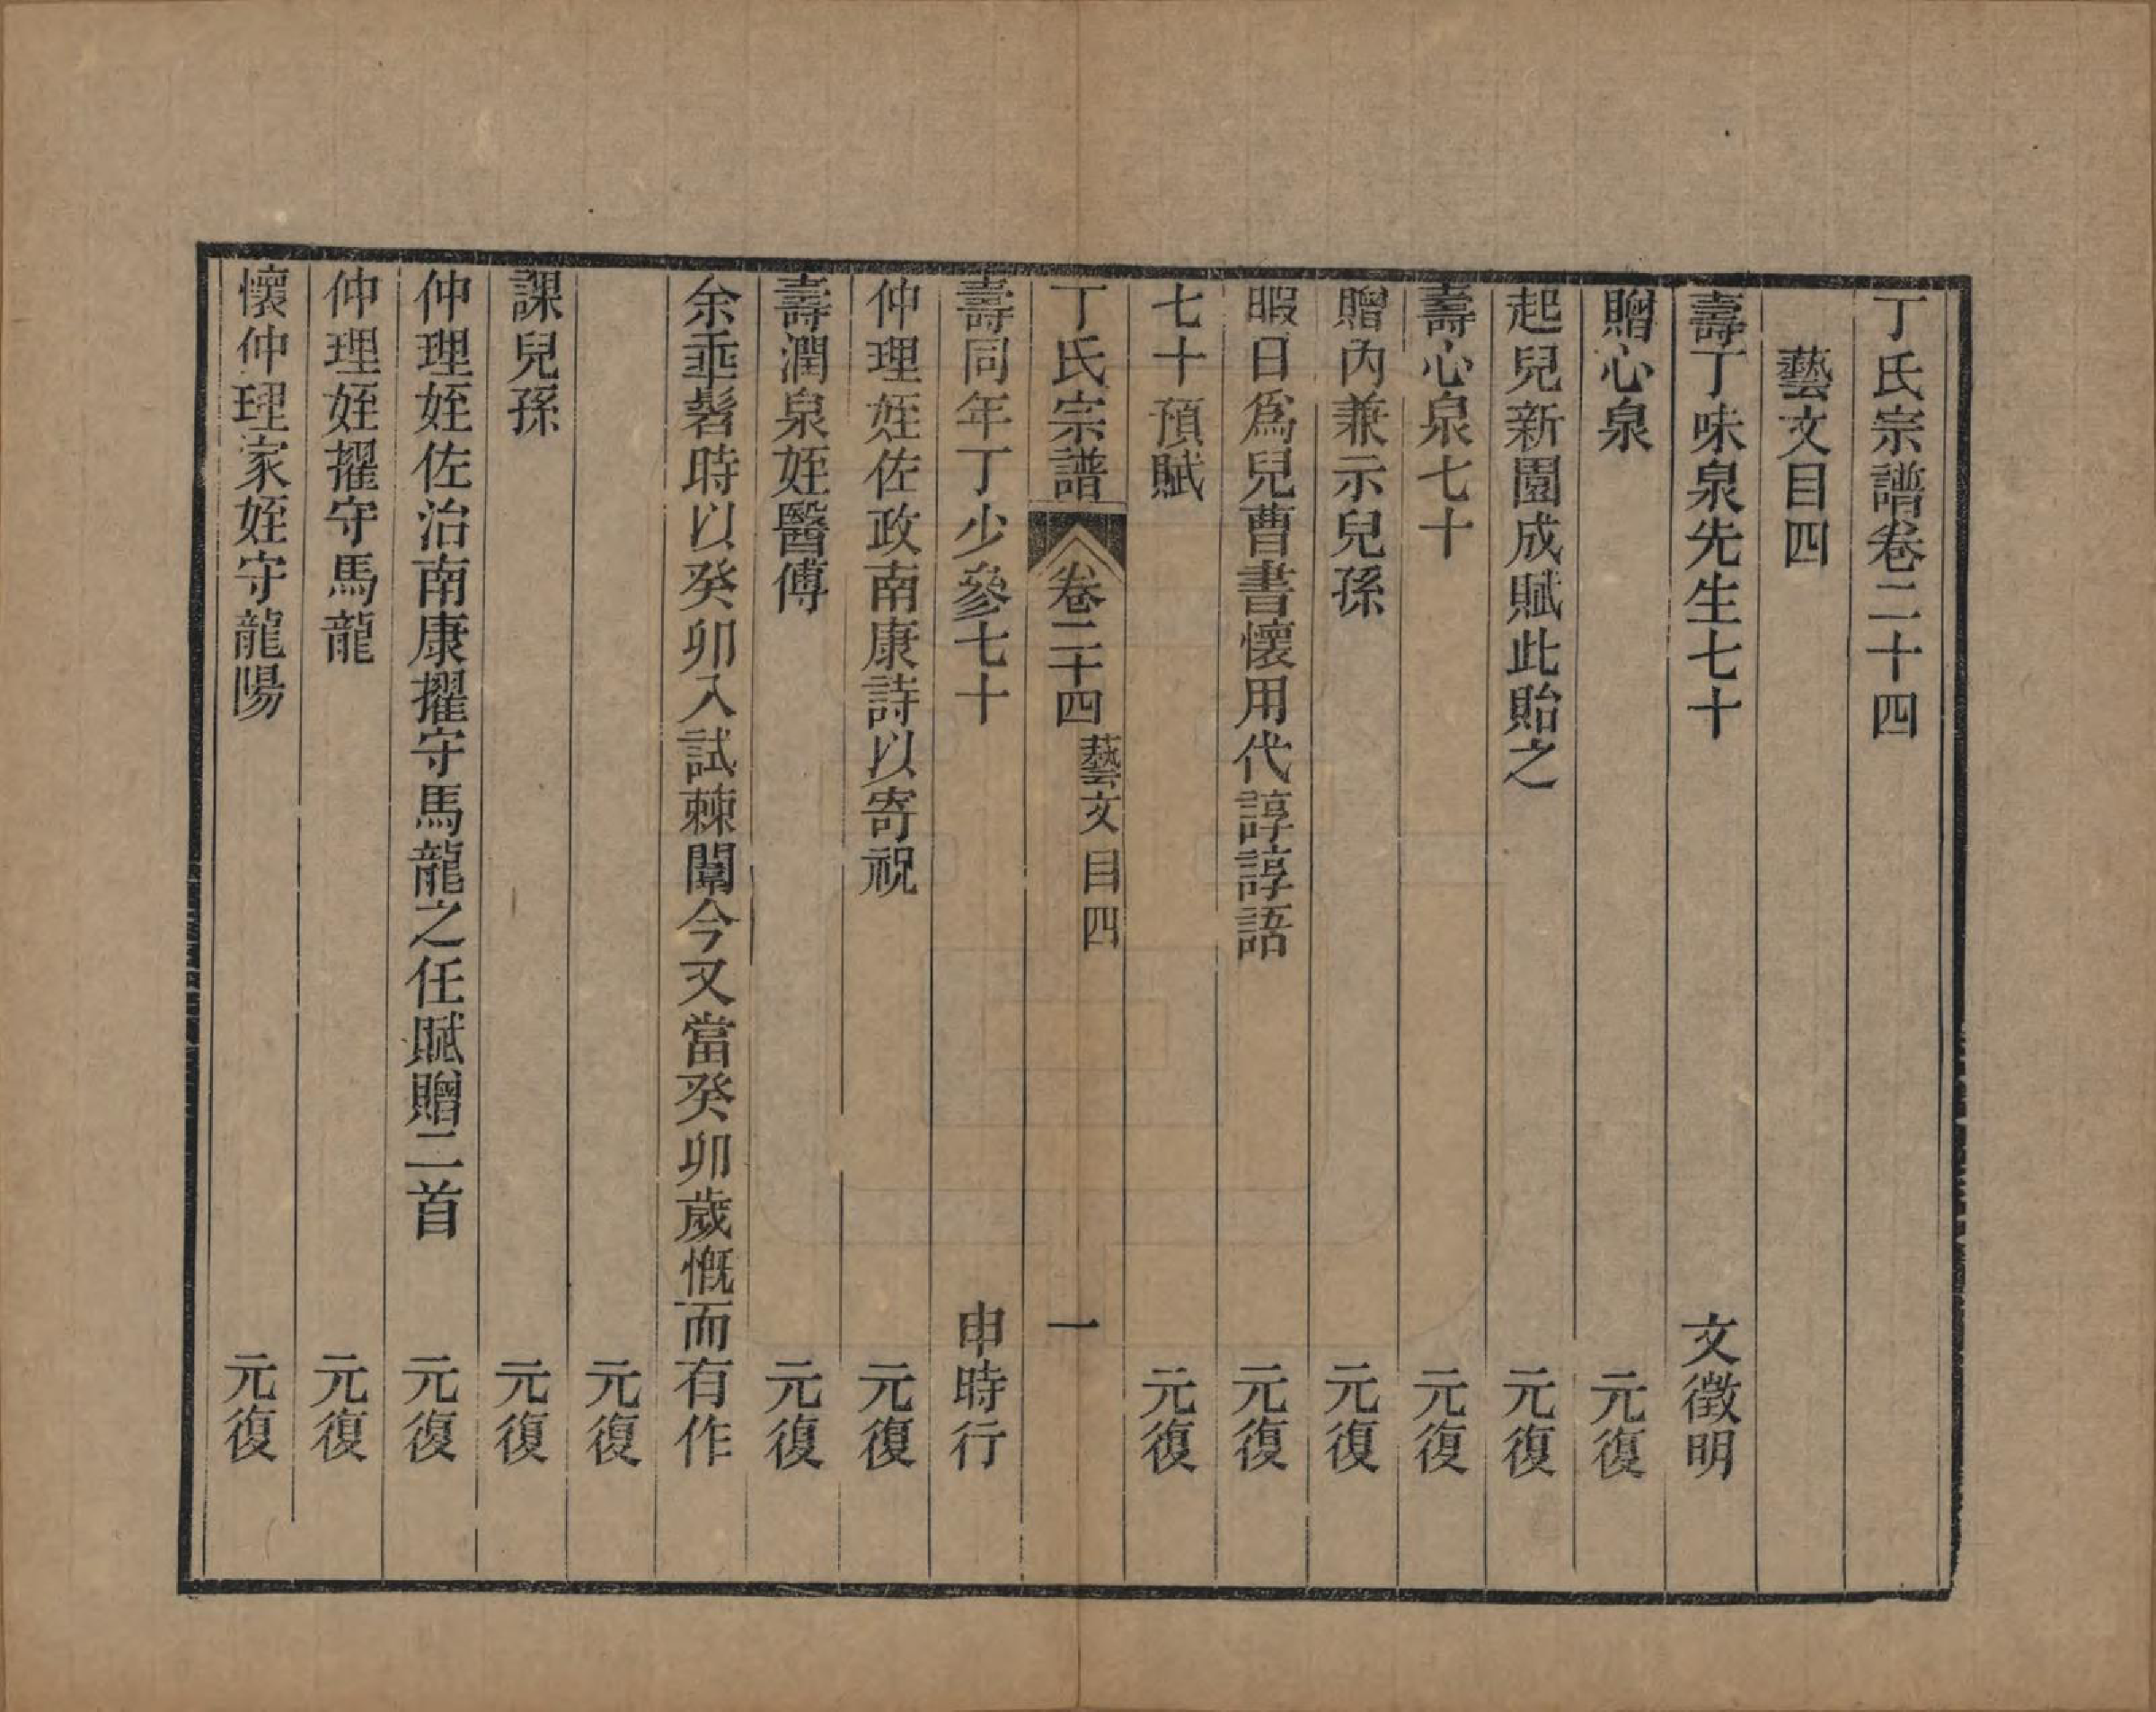 丁氏宗譜卷二十四
藝文目四
壽丁味泉先生七十　文徵明
贈心泉　元復
起兒新園成賦此貽之　元復
壽心泉七十　元復
贈內兼示兒孫　元復
暇日為兒曹書懷用代諄諄語　元復
七十預賦　元復
丁氏宗譜　卷二十四　藝文目四　一
壽同年丁少參七十　申時行
仲理姪佐政南康詩以寄祝　元復
壽潤泉姪醫傅　元復
余乖髫時以癸卯入試棘闈今又當癸卯歲慨而有作
元復
課兒孫　元復
仲理姪佐治南康擢守馬龍之任賦贈二首　元復
仲理姪擢守馬龍　元復
懷仲理家姪守龍陽　元復